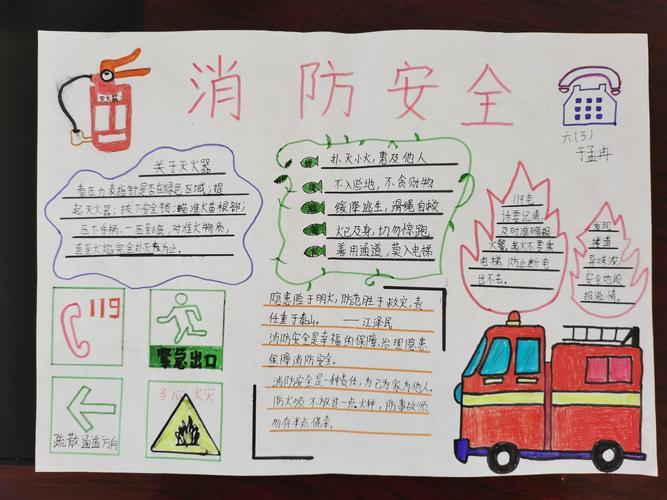 消防安全
灭火器
六(3)
于孟冉
关于灭火器
看压力表指针是否在绿色区域;提
起灭火器;拔下安全销;瞄准火苗根部;
压下手柄,一压到底,对准火物质,
直至火焰完全扑灭为止。
扑灭小火,惠及他人
不入险地,不贪财物
缓降逃生,滑绳自救
火已及身,切勿惊跑
善用通道,莫入电梯
119电
话要记清,
及时准确报
火警,起火不要乘
电梯,防止断电
出不去。
发现
楼道
异味浓,
安全地段
报险情。
119
紧急出口
疏散通道方向
当心火灾
隐患险于明火,防范胜于救灾,责
任重于泰山。 ——江泽民
消防安全是幸福的保障,治理隐患
保障消防安全。
消防安全是一种责任,为己为家为他人。
防火须不放过一点火种,防事故须
勿有半点侥幸。